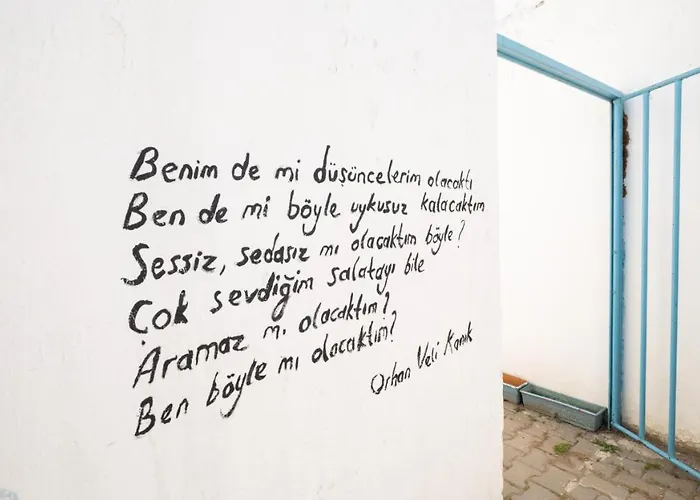 Benim de mi düşüncelerim olacaktı
Ben de mi böyle uykusuz kalacaktım
Sessiz, sedasız mı olacaktım böyle?
Çok sevdiğim salatayı bile
Aramaz mı olacaktım?
Ben böyle mı olacaktım?
Orhan Veli Kanık